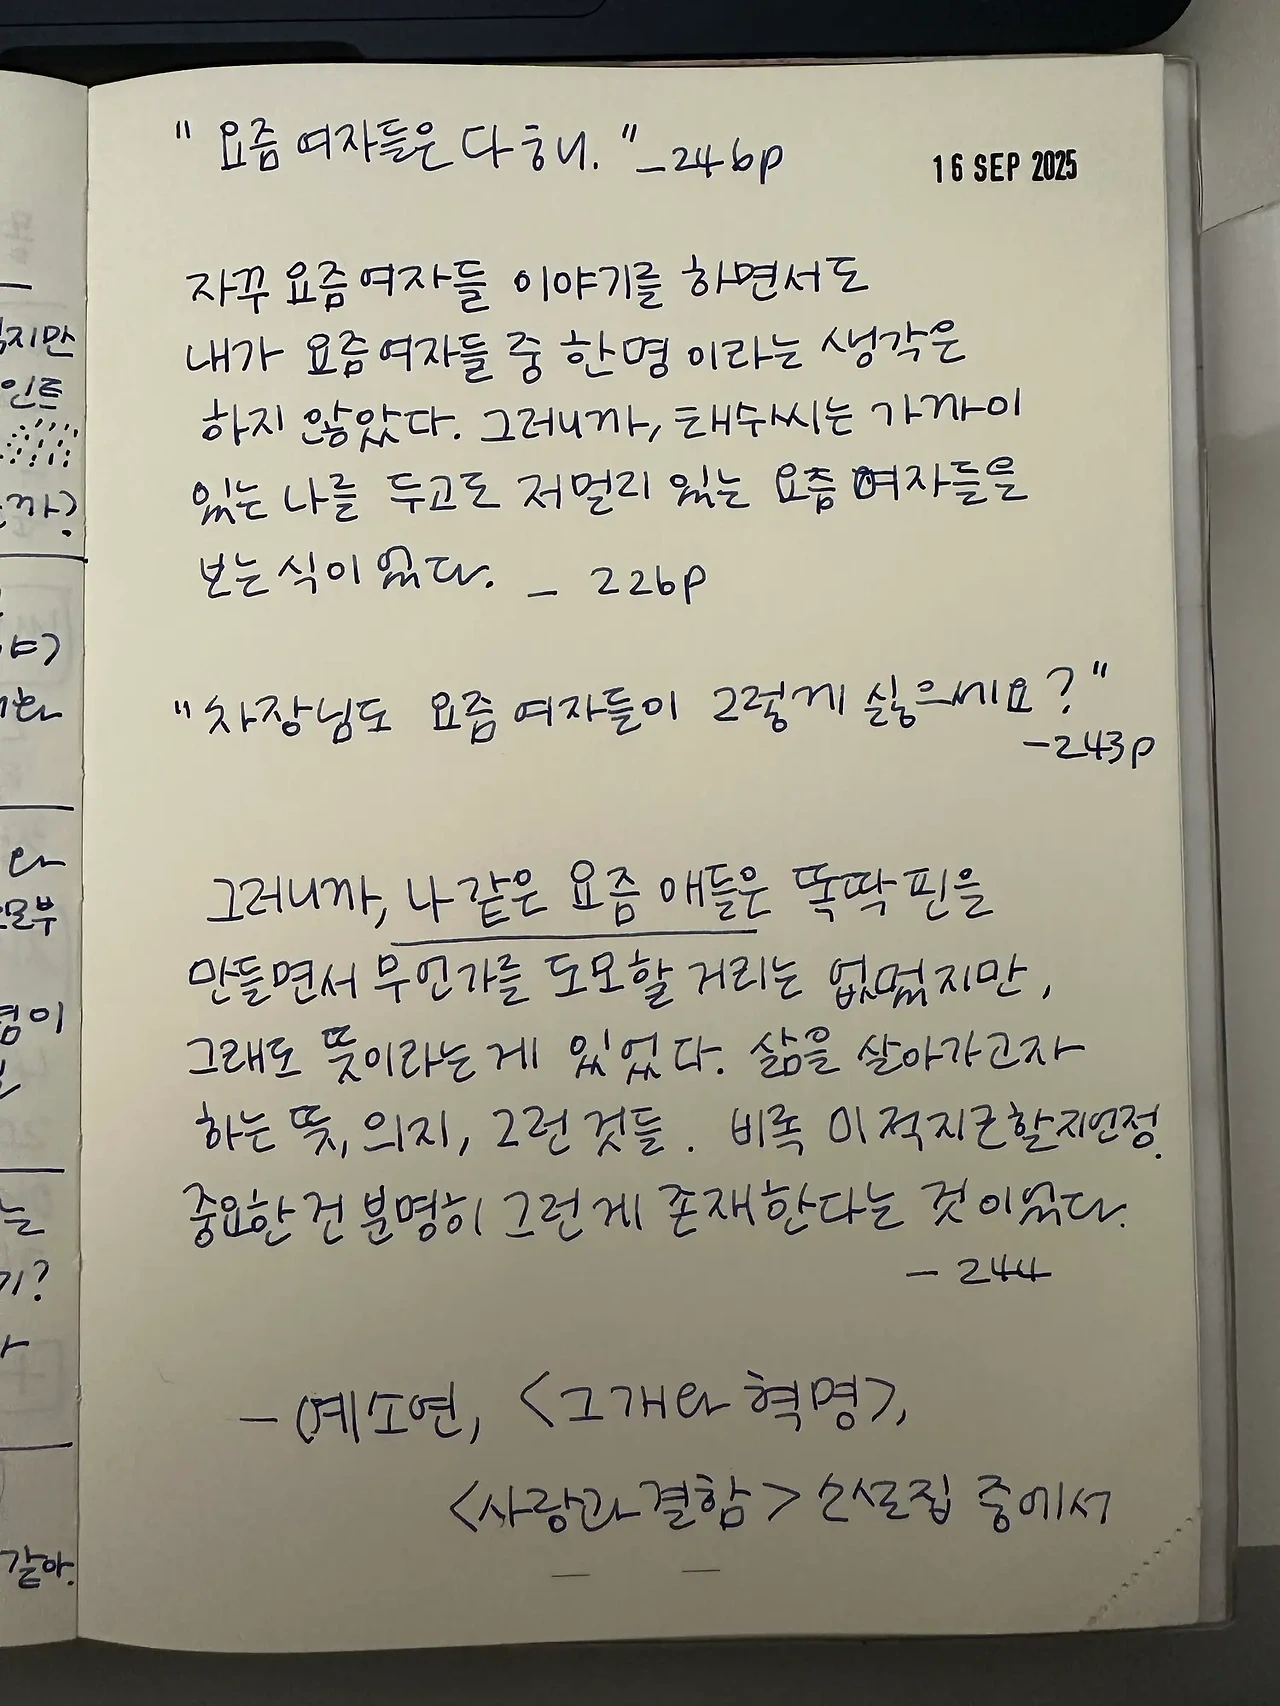 "요즘 여자들은 다 해." -246p
16 SEP 2025
자꾸 요즘 여자들 이야기를 하면서도
내가 요즘 여자들 중 한명 이라는 생각은
하지 않았다. 그러니까, 태수씨는 가까이
있는 나를 두고도 저멀리 있는 요즘 여자들을
보는 식이었다. - 226p
"차장님도 요즘 여자들이 그렇게 싫으세요?"
-243p
그러니까, 나 같은 요즘 애들은 똑딱 핀을
만들면서 무언가를 도모할 거리는 없었지만,
그래도 뜻이라는게 있었다. 삶을 살아가고자
하는 뜻, 의지, 그런 것들. 비록 미적지근할지언정.
중요한 건 분명히 그런게 존재한다는 것이었다.
- 244
- 예소연, <그 개와 혁명>,
<사랑과 결함> 소설집 중에서
지만
인트
까?
야?
다
모부
점이
는
기?
같아.